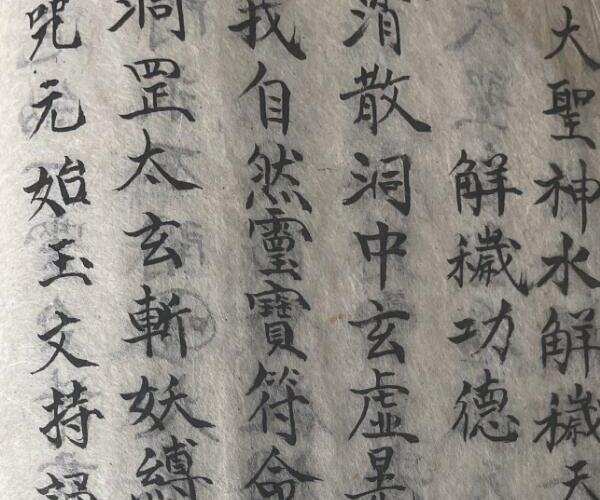 大聖神水解穢天
解穢功德
消散洞中玄虛晃
我自然靈寶符命
洞罡太玄斬妖縛
呪元始玉文持誦